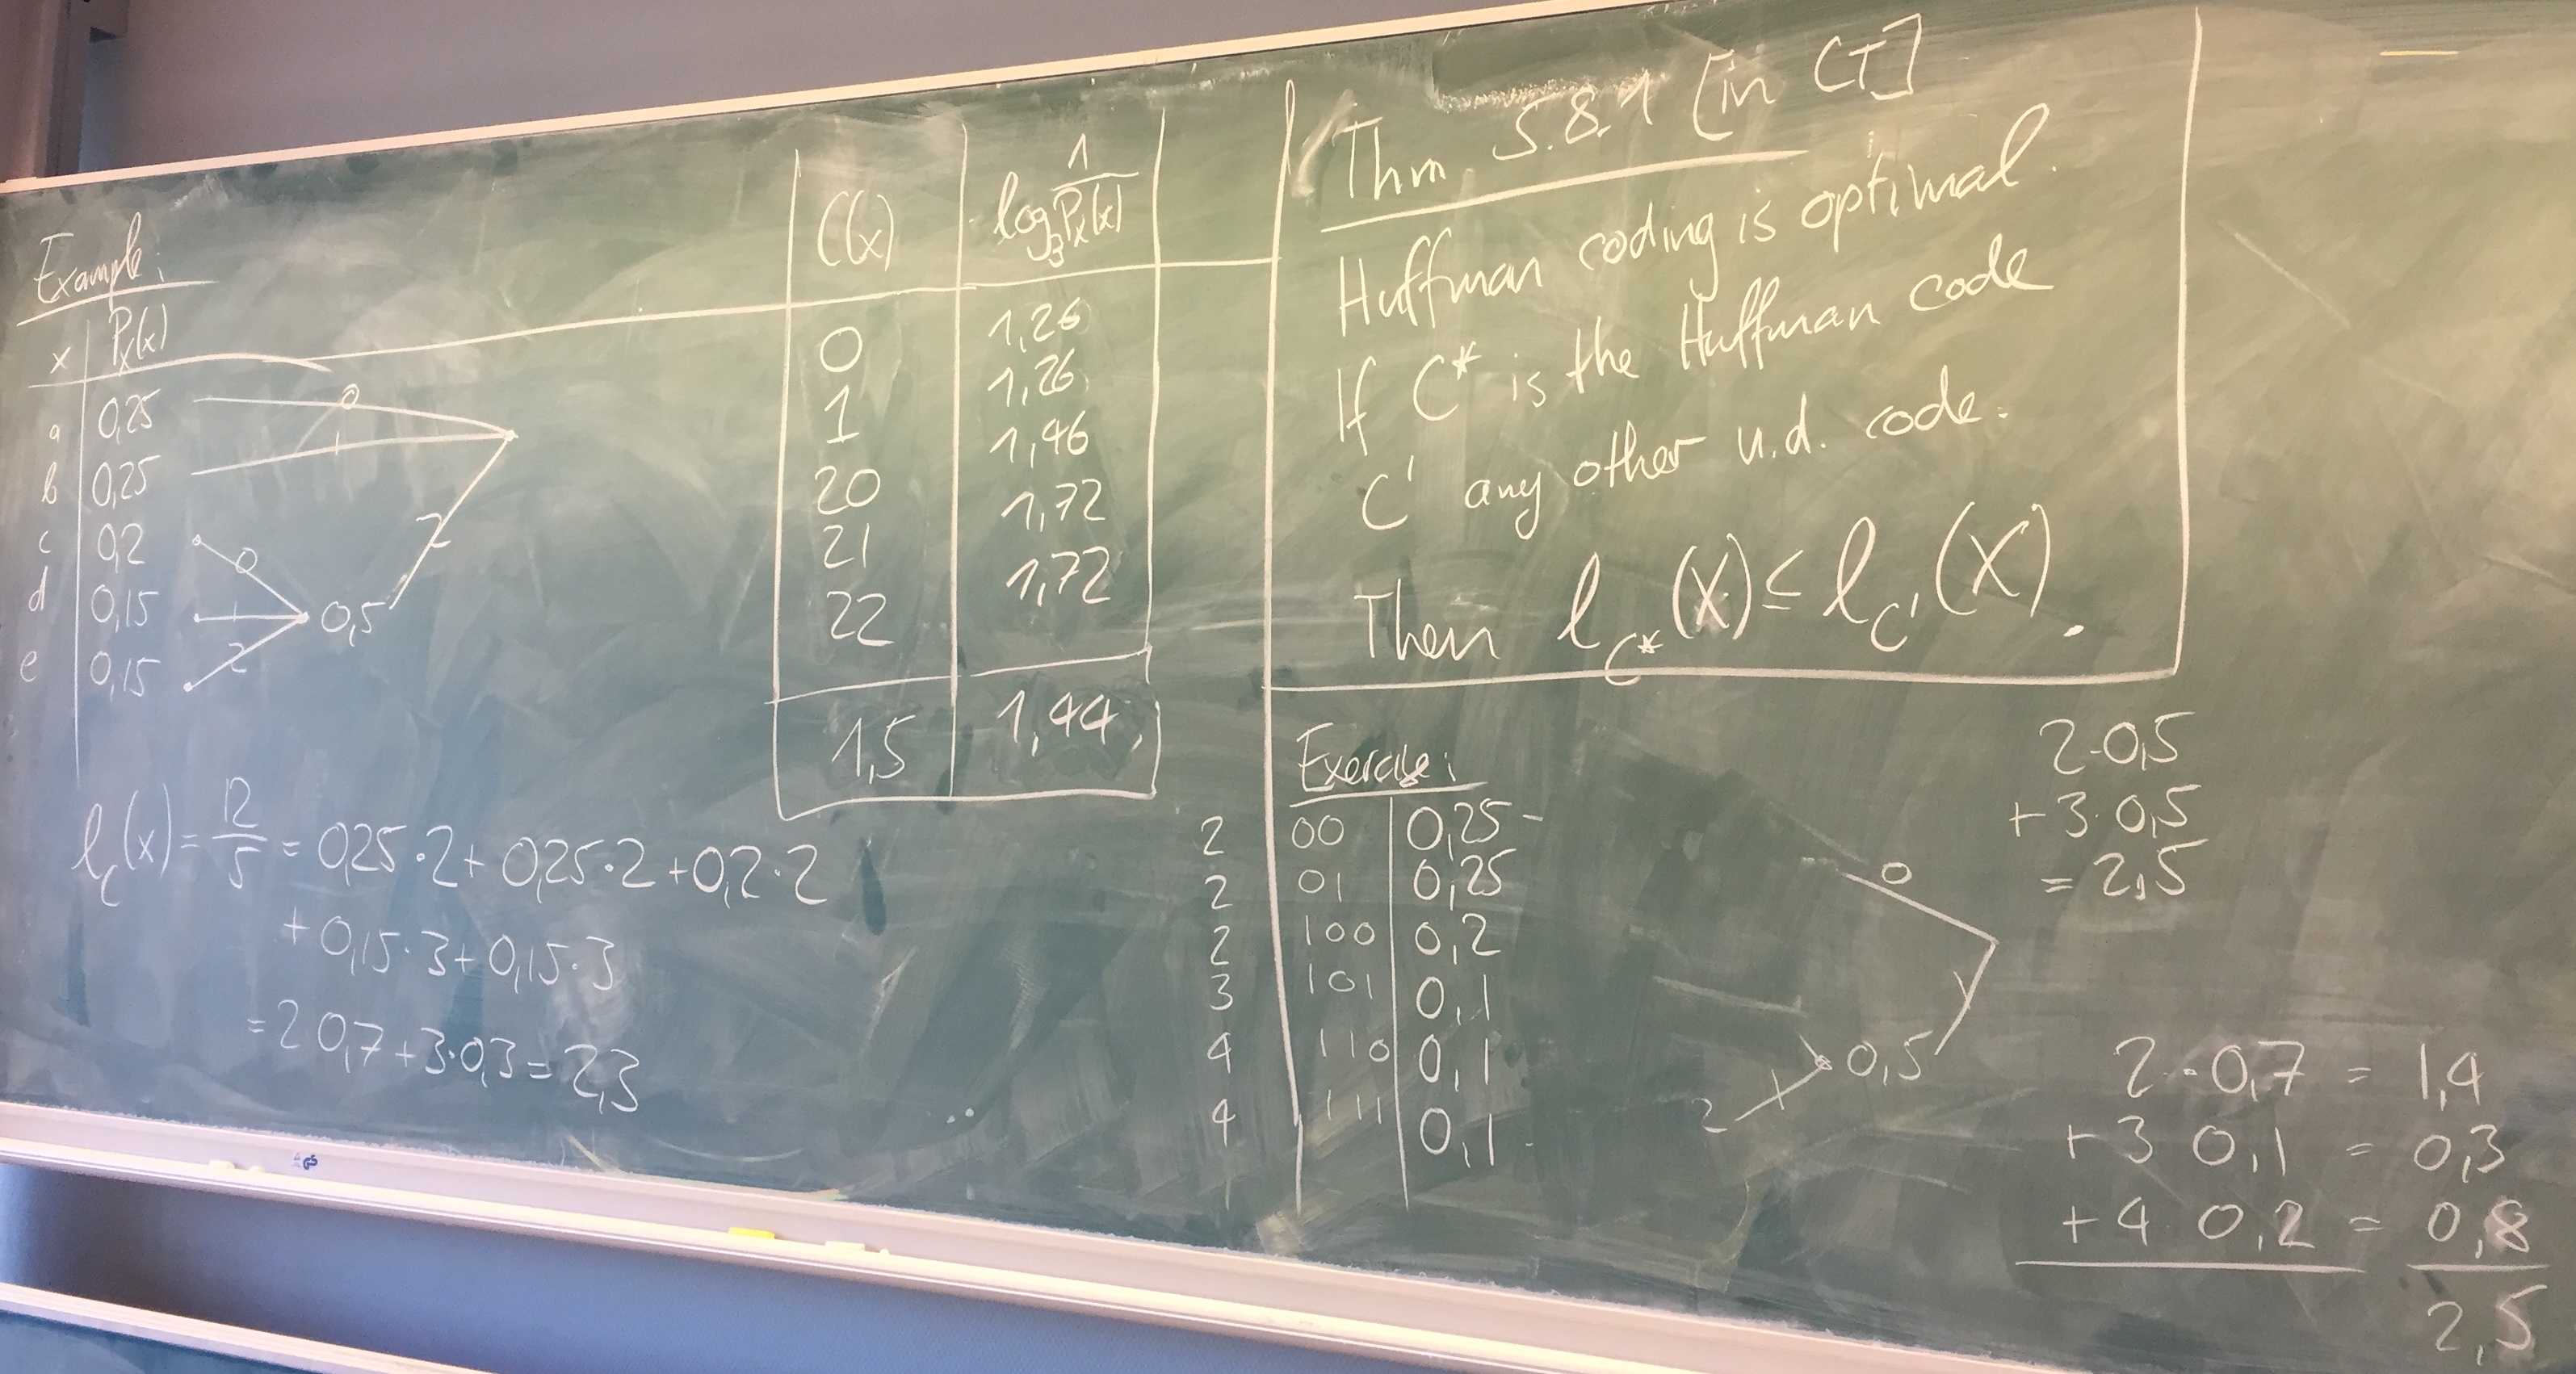 Example:
x | P_X(x) | C(x) | log_3 1/P_X(x)
a | 0,25 | 0 | 1,26
b | 0,25 | 1 | 1,26
c | 0,2 | 20 | 1,46
d | 0,15 | 21 | 1,72
e | 0,15 | 22 | 1,72
1,5 | 1,44
0
1
0
1
2
0,5
2
l_C(x) = 12/5 = 0,25·2 + 0,25·2 + 0,2·2
+ 0,15·3 + 0,15·3
= 2 0,7 + 3·0,3 = 2,3
Thm 5.8.1 [in CT]
Huffman coding is optimal.
If C* is the Huffman code
C' any other u.d. code.
Then l_C*(X) ≤ l_C'(X).
Exercise:
2 | 00 | 0,25
2 | 01 | 0,25
2 | 100 | 0,2
3 | 101 | 0,1
4 | 110 | 0,1
4 | 111 | 0,1
0
1
0,5
1
2
2·0,5
+ 3·0,5
= 2,5
2·0,7 = 1,4
+ 3 0,1 = 0,3
+ 4 0,2 = 0,8
2,5